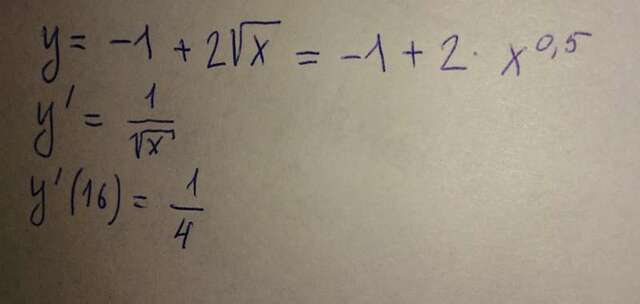 y = -1 + 2√x = -1 + 2 · x^0,5
y' = 1/√x
y'(16) = 1/4